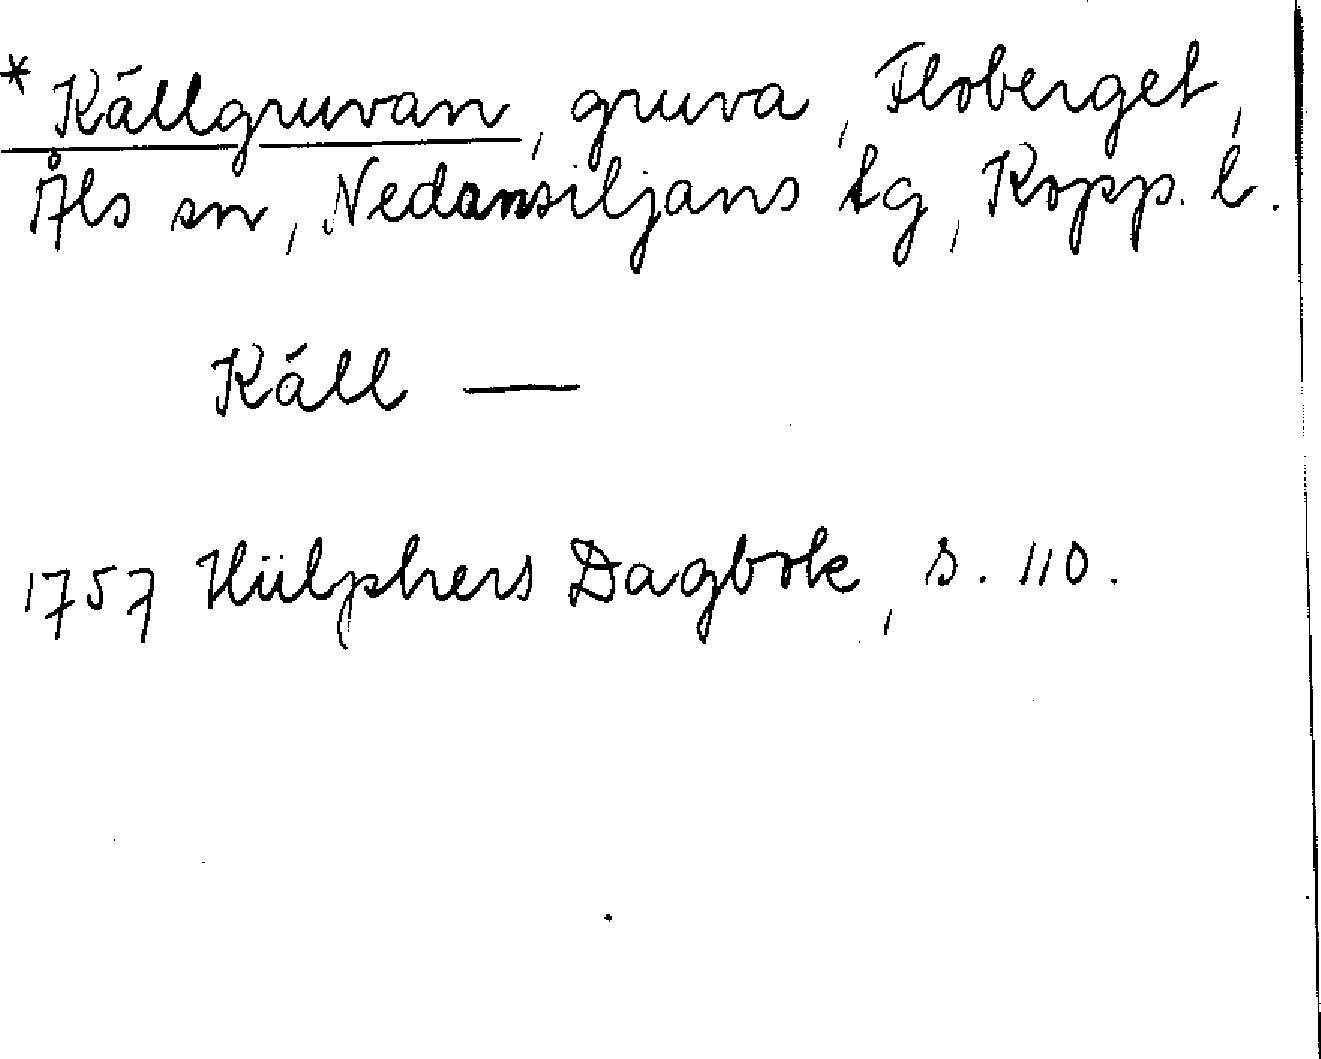 * Källgruvan, gruva, Floberget,
Åls sn, Nedansiljans tg, Kopp. l.
Käll —
1757 Hülphers Dagbok, s. 110.